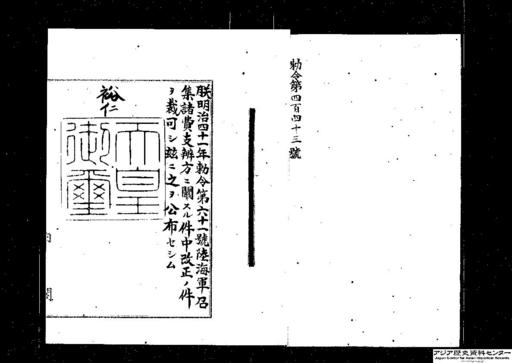 勅令第四百四十三號
朕明治四十一年勅令第六十一號陸海軍召
集諸費支辨方ニ關スル件中改正ノ件
ヲ裁可シ茲ニ之ヲ公布セシム
裕仁
天皇
御璽
内閣
アジア歴史資料センター
Japan Center for Asian Historical Records